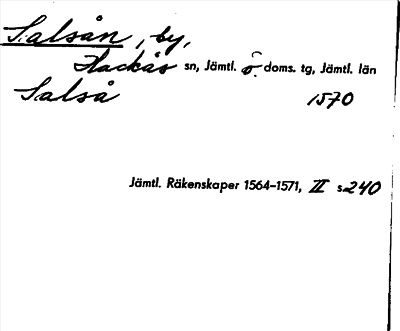 Salsån, by,
Hackås sn, Jämtl. ö. doms. tg, Jämtl. län
Salså 1570
Jämtl. Räkenskaper 1564–1571, II s. 240